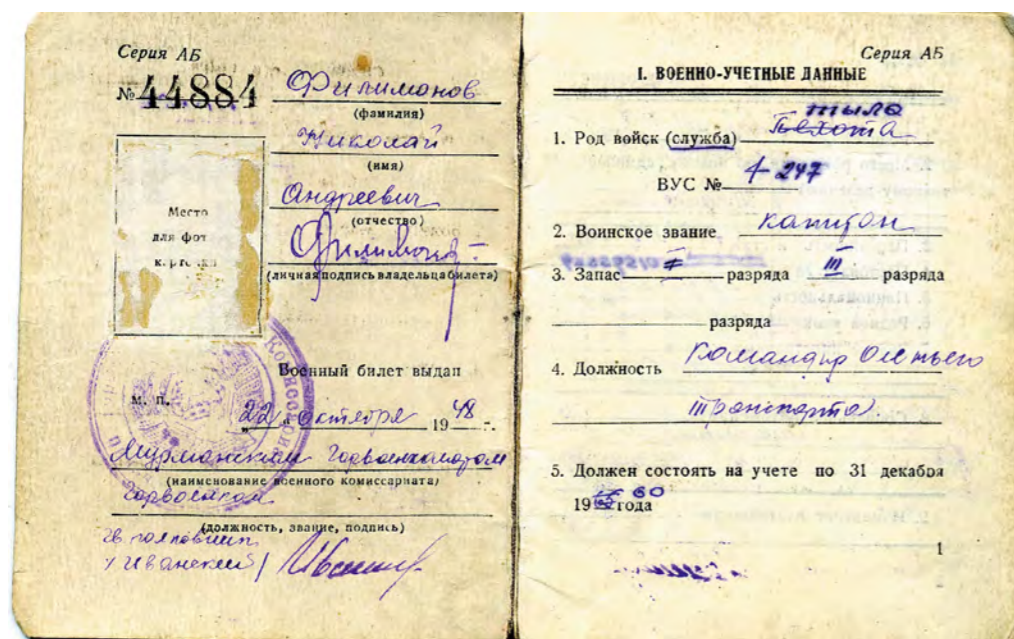 Серия АБ
№ 44884
Филимонов
(фамилия)
Николай
(имя)
Андреевич
(отчество)
Филимонов
(личная подпись владельца билета)
Место
для фот
карточки
Военный билет выдан
М. П.
„22“ октября 1948 г.
Мурманским Горвоенкоматом
(наименование военного комиссариата)
Горвоенком
(должность, звание, подпись)
гв полковник
Серия АБ
I. ВОЕННО-УЧЕТНЫЕ ДАННЫЕ
тыла
1. Род войск (служба) Пехота
ВУС № 4-247
2. Воинское звание капитан
3. Запас I разряда III разряда
разряда
4. Должность Командир Оленьего
транспорта
5. Должен состоять на учете по 31 декабря
1960 года
1